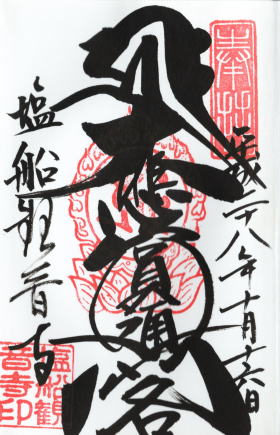 奉拝
平成二十八年十月十六日
大悲圓通閣
塩船観音寺
塩船觀
音寺印